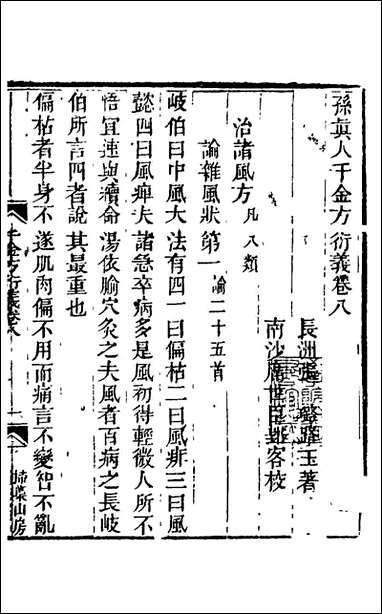 孫真人千金方衍義卷八
長洲張璐路玉著
南沙席世臣郢客校
治諸風方凡八類
論雜風狀第一論二十五首
岐伯曰中風大法有四一曰偏枯二曰風痱三曰風
懿四曰風痹夫諸急卒病多是風初得輕微人所不
悟宜速與續命湯依腧穴灸之夫風者百病之長岐
伯所言四者說其最重也
偏枯者半身不遂肌肉偏不用而痛言不變智不亂
千金方衍義卷八
一
掃葉山房